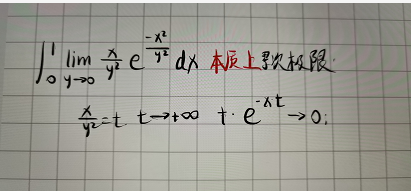 ∫₀¹ lim_{y→0} x/y² e^{-x²/y²} dx 本质上求极限
x/y² = t t→+∞ t·e^{-xt}→0;